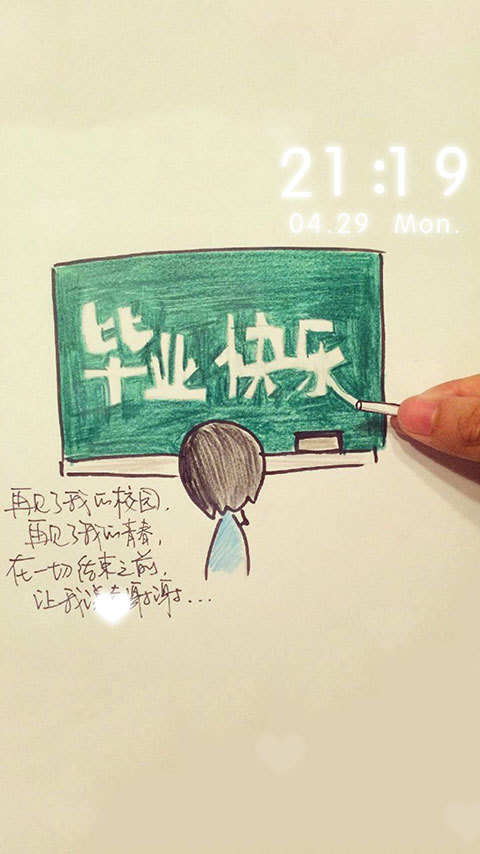 21:19
04.29 Mon.
毕业快乐
再见了我的校园,
再见了我的青春,
在一切结束之前,
让我谢谢...